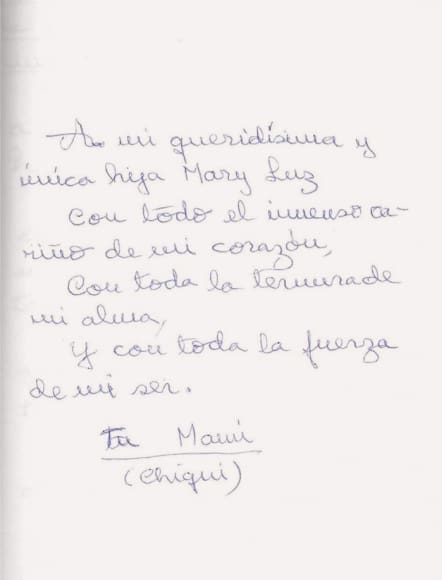 A mi queridísima y
única hija Mary Luz
Con todo el inmenso ca-
riño de mi corazón,
Con toda la ternura de
mi alma,
Y con toda la fuerza
de mi ser.
tu Mami
(Chiqui)